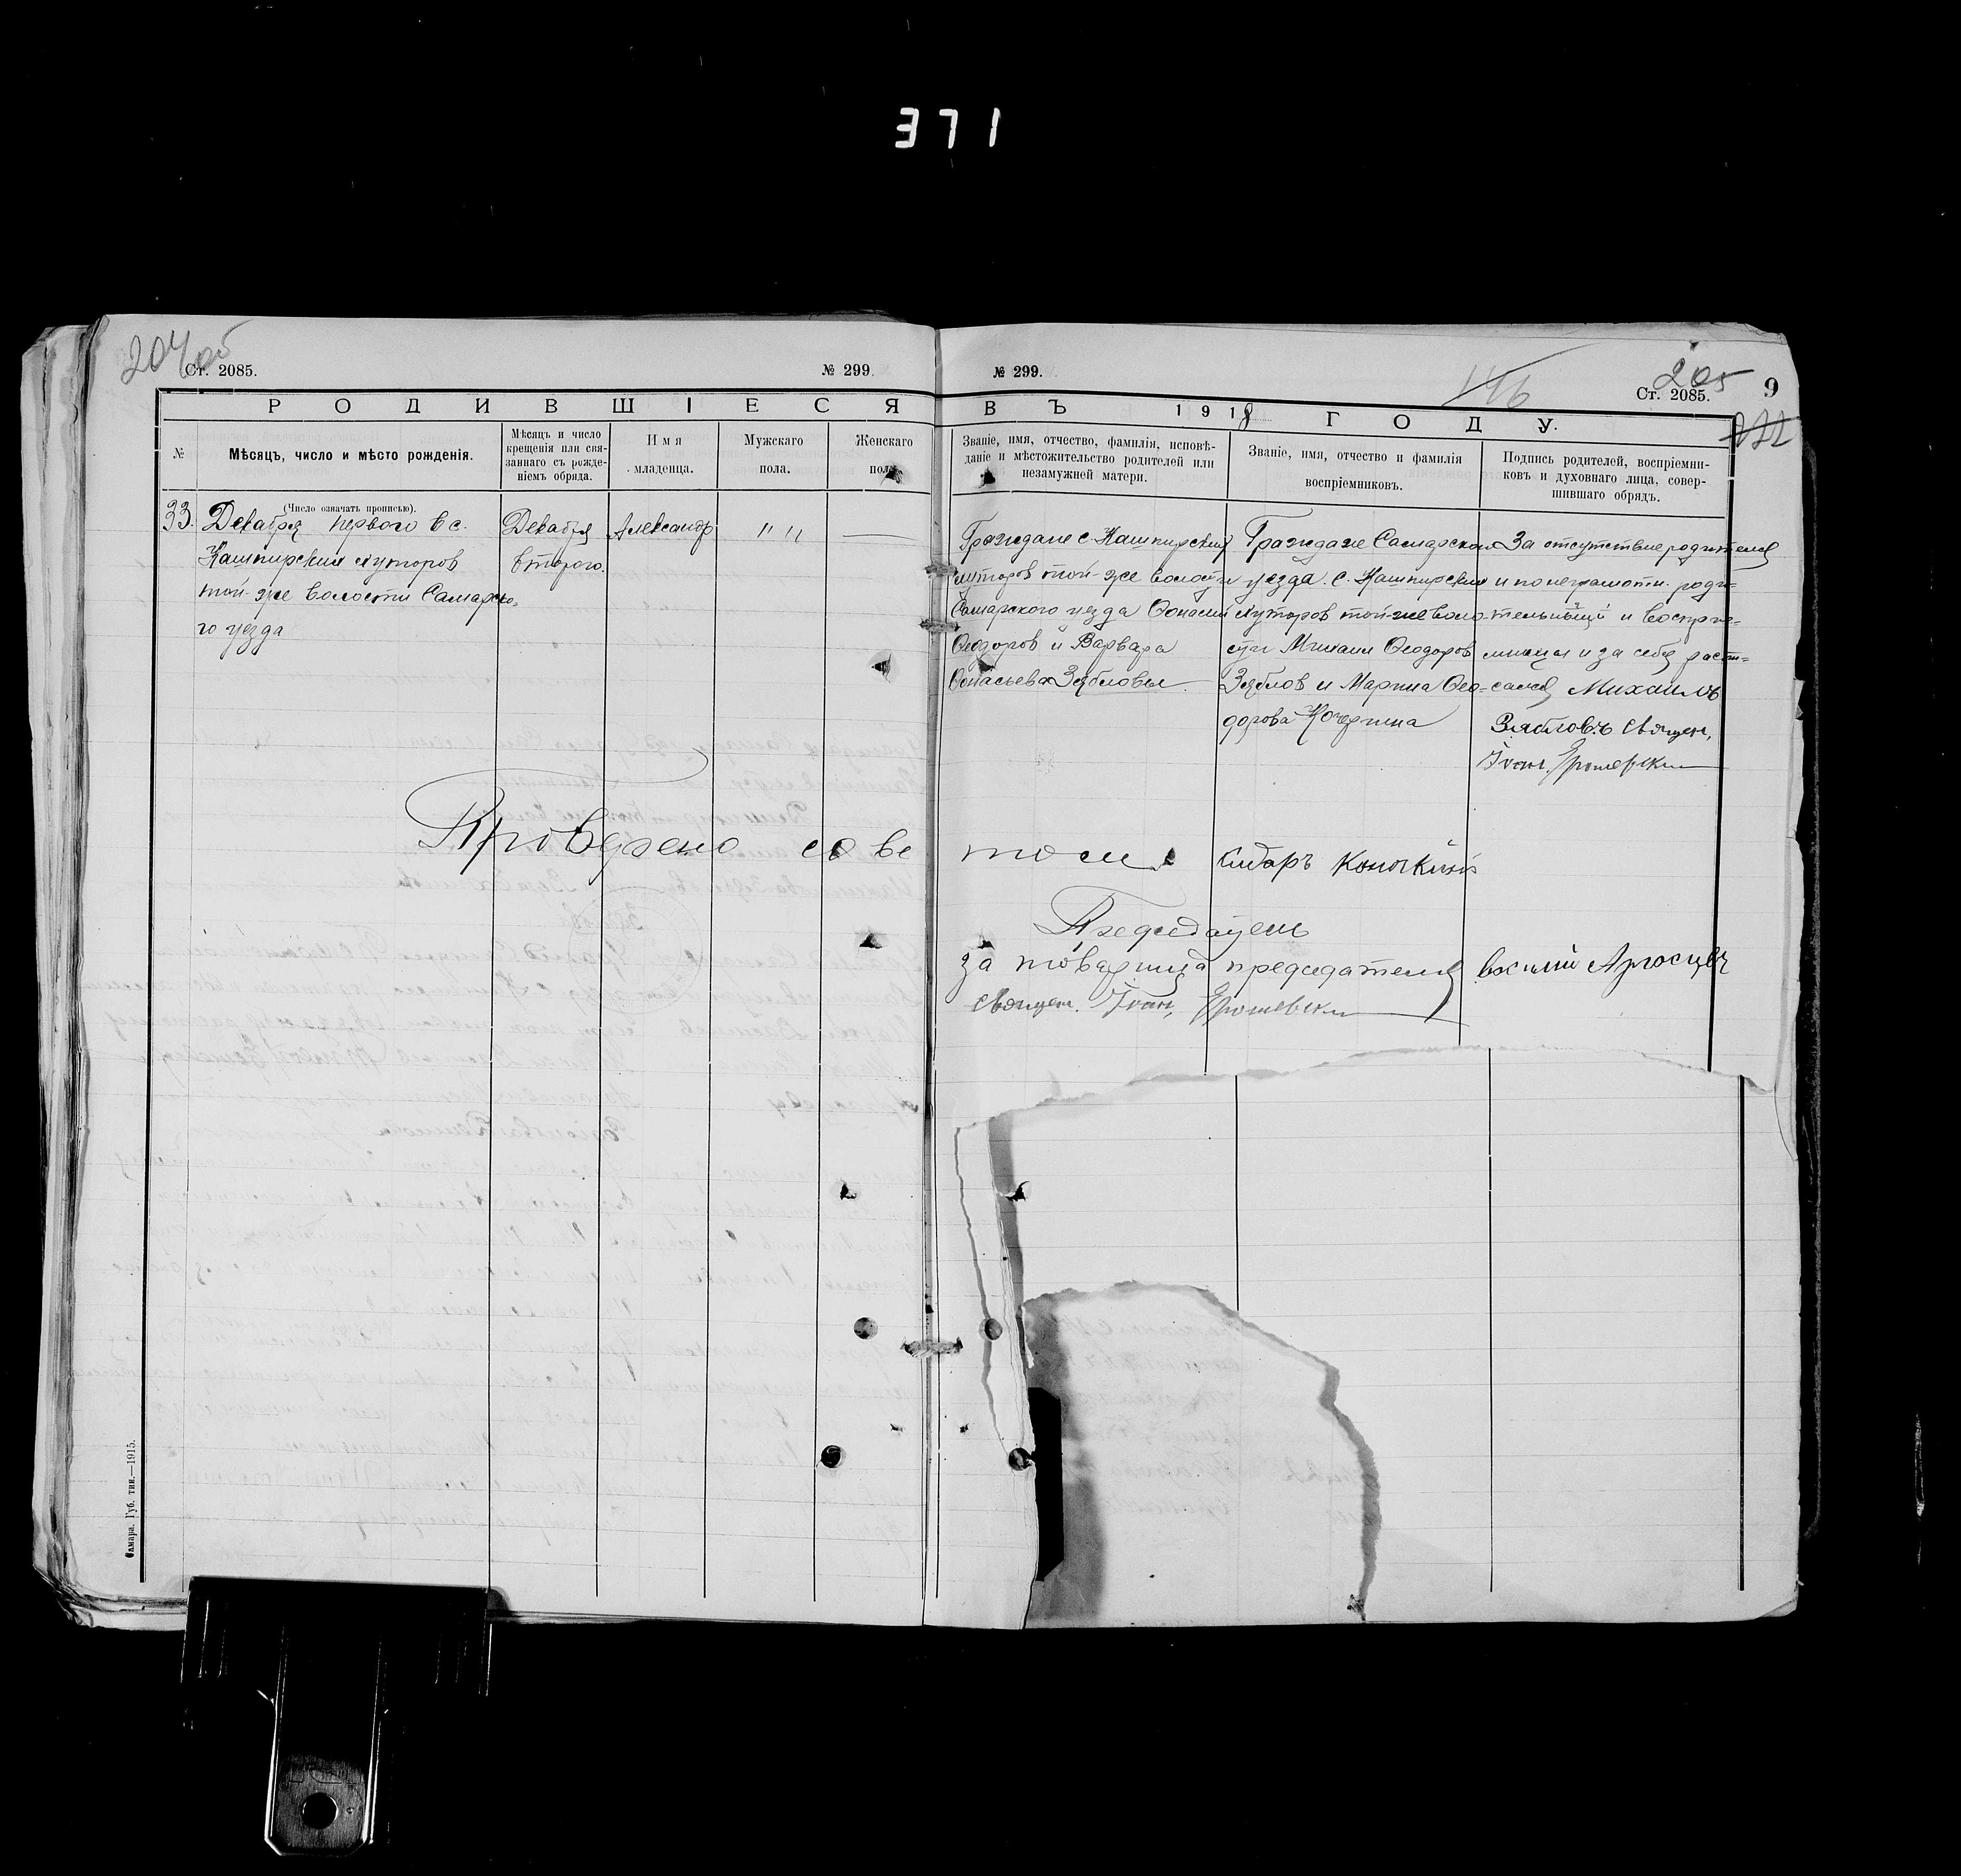 371
204об
Ст. 2085.
№ 299.
№ 299.
146
205
Ст. 2085.
9
РОДИВШІЕСЯ
ВЪ 1918 ГОДУ.
№
Мѣсяцъ, число и мѣсто рожденія.
Мѣсяцъ и число
крещенія или свя-
заннаго съ рожде-
ніемъ обряда.
Имя
младенца.
Мужскаго
пола.
Женскаго
пола.
Званіе, имя, отчество, фамилія, исповѣ-
даніе и мѣстожительство родителей или
незамужней матери.
Званіе, имя, отчество и фамилія
воспріемниковъ.
Подпись родителей, воспріемни-
ковъ и духовнаго лица, совер-
шившаго обрядъ.
(Число означать прописью).
33.
Декабря первого в с.
Кашпирский хуторов
той-же волости Самарско-
го уезда
Декабря
второго.
Александр
" "
Граждане с. Кашпирский
хуторов той-же волости
Самарского уезда
Ѳеодоров и Варвара
Зябловы
Граждане Самарского
уезда. с. Кашпирский
хуторов той-же воло-
сти Михаил Ѳеодоров
Зяблов и Марина Ѳео-
дорова
За отсутствие родителей
и по неграмотн. роди-
и восприе-
мницы и за себя распи-
сался Михаилъ
Зябловъ священ,
Іоан.
Проверено советом
Председатель
за товарища председателя
священ. Іоан,
Самара. Губ. тип.—1915.